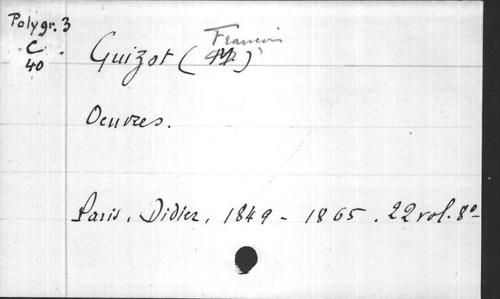 Polygr. 3
C
40
François
Guizot (M)
Oeuvres.
Paris, Didier, 1849 - 1865. 22 vol. 8°